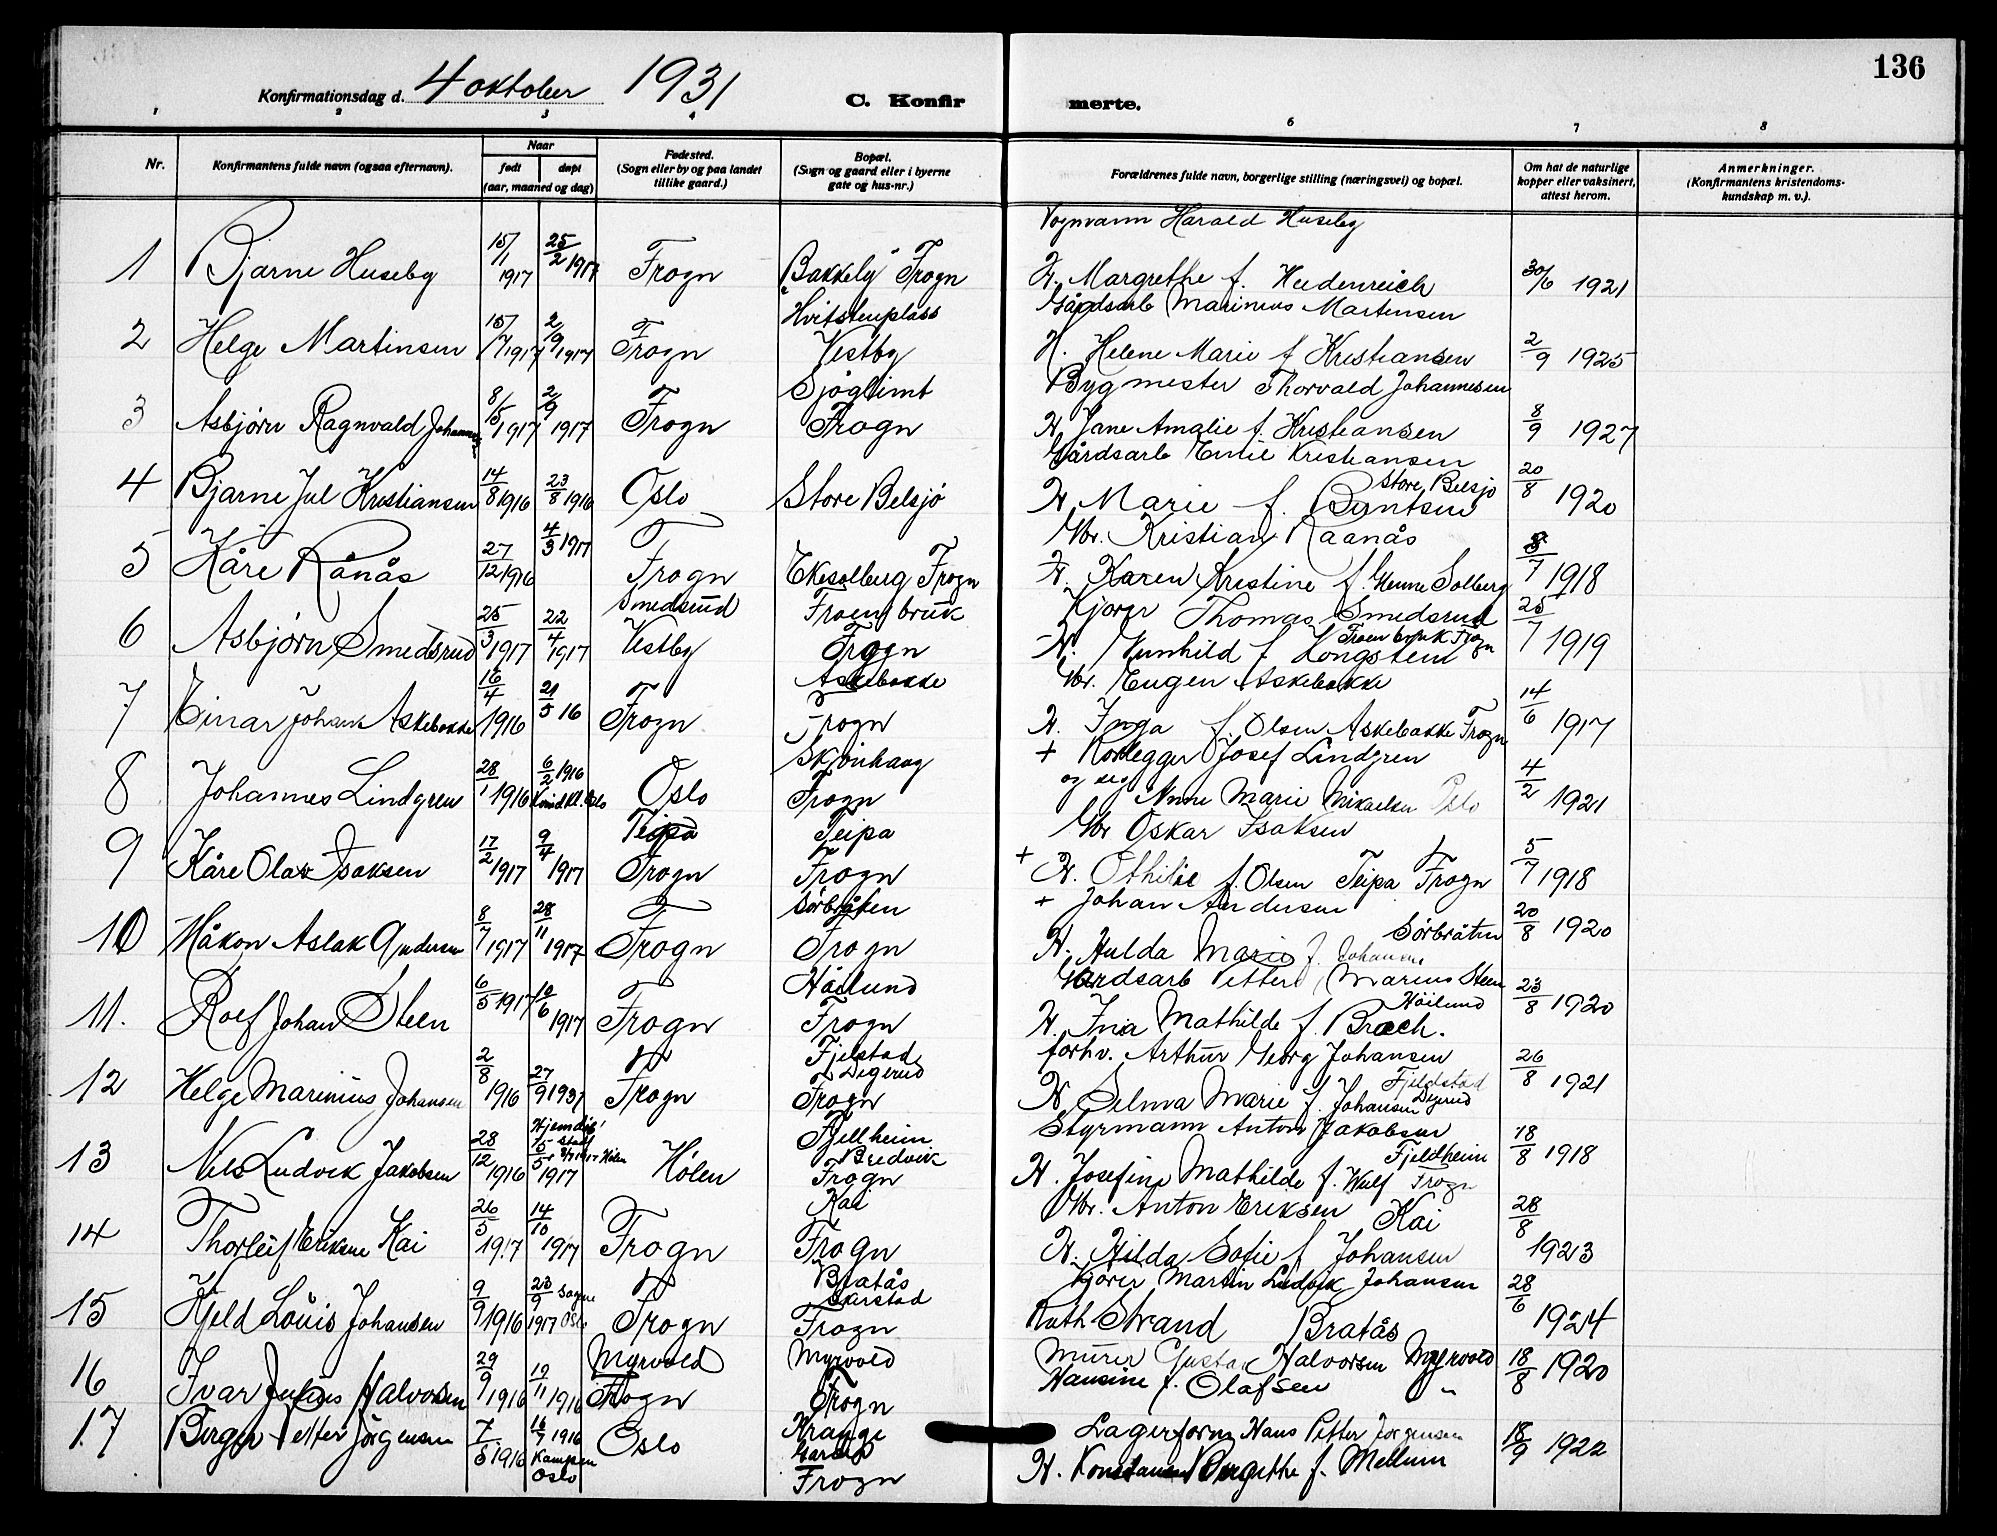 136
Konfirmationsdag d. 4 oktober 1931
C. Konfirmerte.
1 2 3 4 6 7 8
Nr.
Konfirmantens fulde navn (ogsaa efternavn).
Naar
født døpt
(aar, maaned og dag)
Fødested.
(Sogn eller by og paa landet
tillike gaard.)
Bopæl.
(Sogn og gaard eller i byerne
gate og hus-nr.)
Forældrenes fulde navn, borgerlige stilling (næringsvei) og bopæl.
Om hat de naturlige
kopper eller vaksinert,
attest herom.
Anmerkninger.
(Konfirmantens kristendoms-
kundskap m. v.).
Vognmann Harald Huseby
1 Bjarne Huseby 15/1 1917 25/2 1917 Frogn "Bakkely" Frogn H. Margrethe f. Heidenreich 30/6 1921
Hvitstenplass Gårdsarb Marinius Martinsen
2 Helge Martinsen 15/7 1917 2/9 1917 Frogn Vestby H. Helene Marie f Kristiansen 2/9 1925
Sjøglimt Bygmester Thorvald Johannesen
3 Asbjørn Ragnvald 8/5 1917 2/9 1917 Frogn Frogn H Jane Amalie f. Kristiansen 8/9 1927
Gårdsarb Emil Kristiansen
Store Belsjø
4 Bjarne Jul Kristiansen 14/8 1916 23/8 1916 Oslo Store Belsjø H Marie f. Berntsen 20/8 1920
Gbr. Kristian Raanås
5 Kåre Rånås 27/12 1916 4/3 1917 Frogn Ekesolberg Frogn H. Karen Kristine f Solberg 8/7 1918
Smedsrud Froen bruk Kjører Thomas Smedsrud
Froen bruk Frogn
6 Asbjørn Smedsrud 25/3 1917 22/4 1917 Vestby Frogn H. Gunhild f Kongstein 25/7 1919
Askebakke Gbr. Eugen Askebakke
7 Einar Johan Askebakke 16/4 1916 21/5 16 Frogn Frogn H. Inga f. Olsen Askebakke Frogn 14/6 1917
Skjønhaug + Rørlegger Josef Lindgren
og
8 Johannes Lindgren 28/1 1916 6/2 1916 Oslo Frogn Anne Marie Mikaelsen Oslo 4/2 1921
Teipa Teipa Gbr Oskar Isaksen
9 Kåre Olav Isaksen 17/2 1917 9/4 1917 Frogn Frogn + H. Othilie f. Olsen Teipa Frogn 5/7 1918
Sørbråten + Johan Andersen
Sørbråten
10 Håkon Aslak Andersen 8/7 1917 28/11 1917 Frogn Frogn H. Hulda Marie f. Johansen 20/8 1920
Høilund Gårdsarb Petter Marius Steen
Høilund
11. Rolf Johan Steen 6/5 1917 10/6 1917 Frogn Frogn H. Ina Mathilde f. Brech. 23/8 1920
Fjelstad forhv. Arthur Georg Johansen
Degerud Fjeldstad
12 Helge Marinius Johansen 2/8 1916 27/9 1931 Frogn Frogn H Selma Marie f. Johansen Degerud 26/8 1921
Hjemdøbt Fjellheim Styrmann Anton Jakobsen
Bredvik Fjeldheim
13 Nils Ludvik Jakobsen 28/12 1916 15/5 1917 Hølen Frogn H. Josefine Mathilde f. Wulf Frogn 18/8 1918
Kai Gbr. Anton Eriksen Kai
14 Thorleif Eriksen Kai 26/5 1917 14/10 1917 Frogn Frogn H. Hilda Sofie f Johansen 28/8 1923
Bratås Kjører Martin Ludvik Johansen
15 Kjeld Louis Johansen 9/9 1916 23/9 1917 Sagene Oslo Frogn Frogn Ruth Strand Bratås 28/6 1924
Myrvold Myrvold Murer Gustav Halvorsen Myrvold
16 Ivar Julius Halvorsen 29/9 1916 19/11 1916 Frogn Frogn Hansine f. Olafsen " 18/8 1920
Krange Lagerform Hans Petter Jørgensen
17 Birger Petter Jørgensen 7/5 1916 16/7 1916 Kampen Oslo Oslo Frogn H. Konstanse Bergitte f. Mellum 18/9 1922